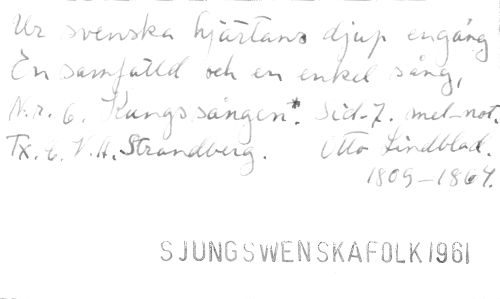 Ur svenska hjärtans djup engång
En samfälld och en enkel sång,
N.r. 6. Kungssången*. Sid-7. mel-not.
Tx. t. V.H. Strandberg. Otto Lindblad.
1809-1864.
SJUNG SWENSKA FOLK 1961